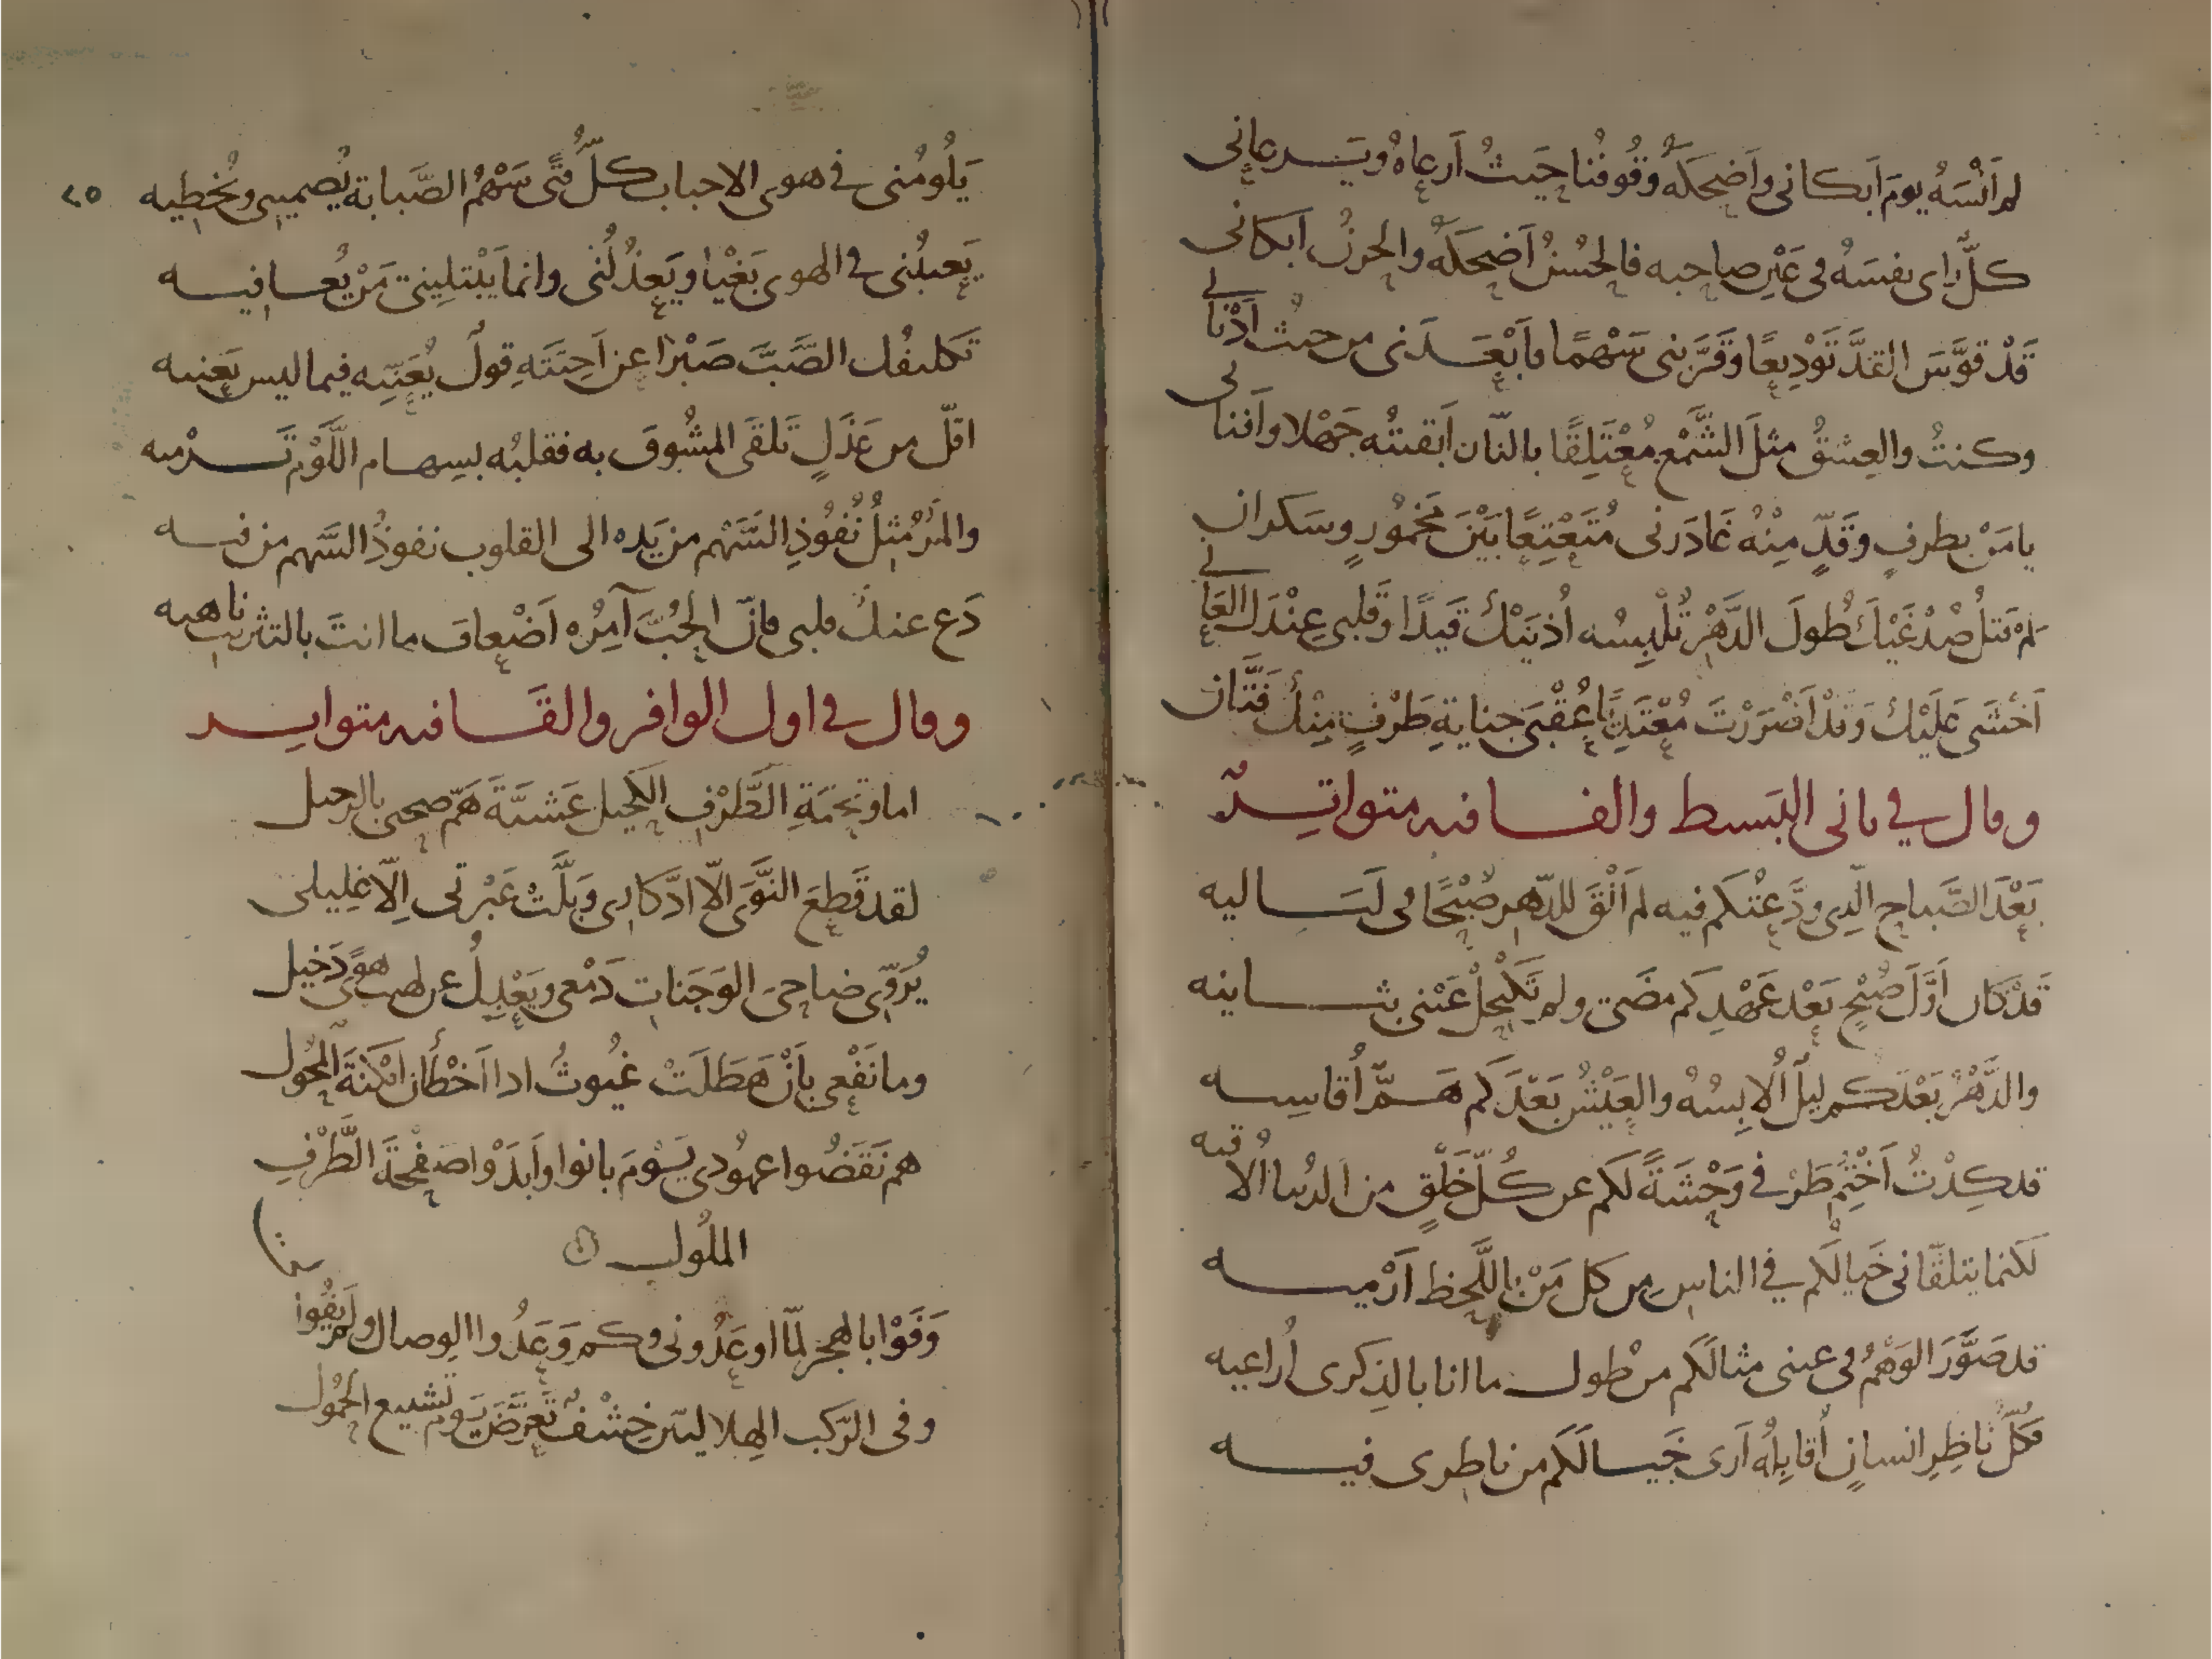 لم اَنْسَهُ يومَ اَبكانى واَضحكَهُ وُقُوفُنا حَيثُ اَرعاهُ ويَرعانى
كلٌّ رَاى نفسَهُ فى عَيْنِ صاحبه فالحُسْنُ اَضحكَهُ والحزنُ ابكانى
قَدْ قوَّسَ القدَّ تَوْدِيعًا وَقَرَّبنى سَهْمًا فاَبْعَدَنى من حيثُ اَدْنانى
وكنتُ والعِشقُ مثلَ الشَّمْعِ مُعْتَلِقًا بالنّار اَبقيتُه جَهْلا واَفنانى
يا مَنْ بطرفٍ وَقَدٍّ مِنْهُ غَادَرنى مُتَعْتِعًا بَيْنَ مَخمُورٍ وسَكرانِ
لَمْ تبتلُ صُدْغَيْكَ طُولَ الدَّهْرِ تُلْبِسُه اُذنَيْكَ قَيدًا وَقلبى عِنْدَكَ العَانى
اَخشَى عَلَيْكَ وَقَدْ اَضْرَرْتَ مُعْتَدِيًا عُقْبَى جنايةِ طَرْفٍ مِنْكَ فَتَّانِ
وقال في ثانى البَسيط والقافيه متواتِرٌ
بَعْدَ الصَّباحِ الّذِى ودَّعْتُكم فيه لم اَلْقَ للدّهرِ صُبْحًا فى لَيَاليه
قَدْ كان اَوَّلَ صُبْحٍ بَعْد عَهْدِكم مضَى ولم تَكْتَحِلْ عَيْنى بثانيه
والدَّهْرُ بَعْدَكم ليلٌ اُلابِسُهُ والعَيْشُ بَعْدَكم هَمٌّ اُقاسِيه
قد كِدْتُ اَخْتِمُ طَرْفي وَحْشَةً لَكم عن كُلِّ خَلْقٍ من الدنيا اُلاقيه
لكنما يتلقّانى خَيالُكم في الناسِ مِن كل مَنْ باللَّحظ اَرْميه
قد صَوَّرَ الوَهْمُ فى عينى مثالَكم من طول ما انا بالذِكرى اُراعيه
فكلُّ ناظِرِ انسانٍ اُقابِلُه اَرى خَيالَكم من ناظرى فيه
٢٥
يَلُومُنى في هوى الاحباب كلُّ فتًى سَهْمُ الصَّبابة يُصميني ويُخطيه
يَعيبُنى في الهوى بَغْيًا ويَعذُلُنى وانما يَبْتلِينى مَنْ يُعافيه
تكليفُك الصَّبَّ صَبْرًا عن اَحِبَّتِهِ قولٌ يُعَنّيه فيما ليس يَعنيه
اقلّ من عَذَلٍ تَلقَى المشُوقَ به فقلبُه بسِهام اللَّوْمِ تَرْميه
والمَرْءُ مثلُ نُفُوذِ السَّهْم من يَدِه الى القلوب نفوذُ السَّهم من فيه
دَع عنكَ قلبى فاِنّ الحُبَّ آمِرُه اَضْعافَ ما انتَ بالتثريب ناهيه
وقال في اول الوافر والقَافيه متواتر
اما وتَحِيَّةِ الطَّرْفِ الكَحيل عَشيَّةَ هَمّ صحبى بالرحيل
لقد قَطعَ النَّوَى الّا ادّكارى وبَلَّتْ عَبْرتى اِلّا غلِيلى
يُرَوّى ضاحىَ الوَجَنات دَمْعى ويَعْدِلُ عن لهيب هوًى دَخيل
وما نَفْعى بأَنْ هَطَلَتْ غيُوثُ اذا اَخْطَأن اَمْكنةَ المُحُول
هم نَقَضُوا عهُودى يَوْمَ بانوا واَبدَوْا صَفْحةَ الطَّرْفِ
الملُول
وَفَوْا بالهجر لمّا اوعَدُونى وكم وَعَدُوا الوِصال ولَم يَفُوا
وفى الرّكب الهلاليّين خِشْفٌ تَعرَّضَ يَومَ تشييع الحُمُول